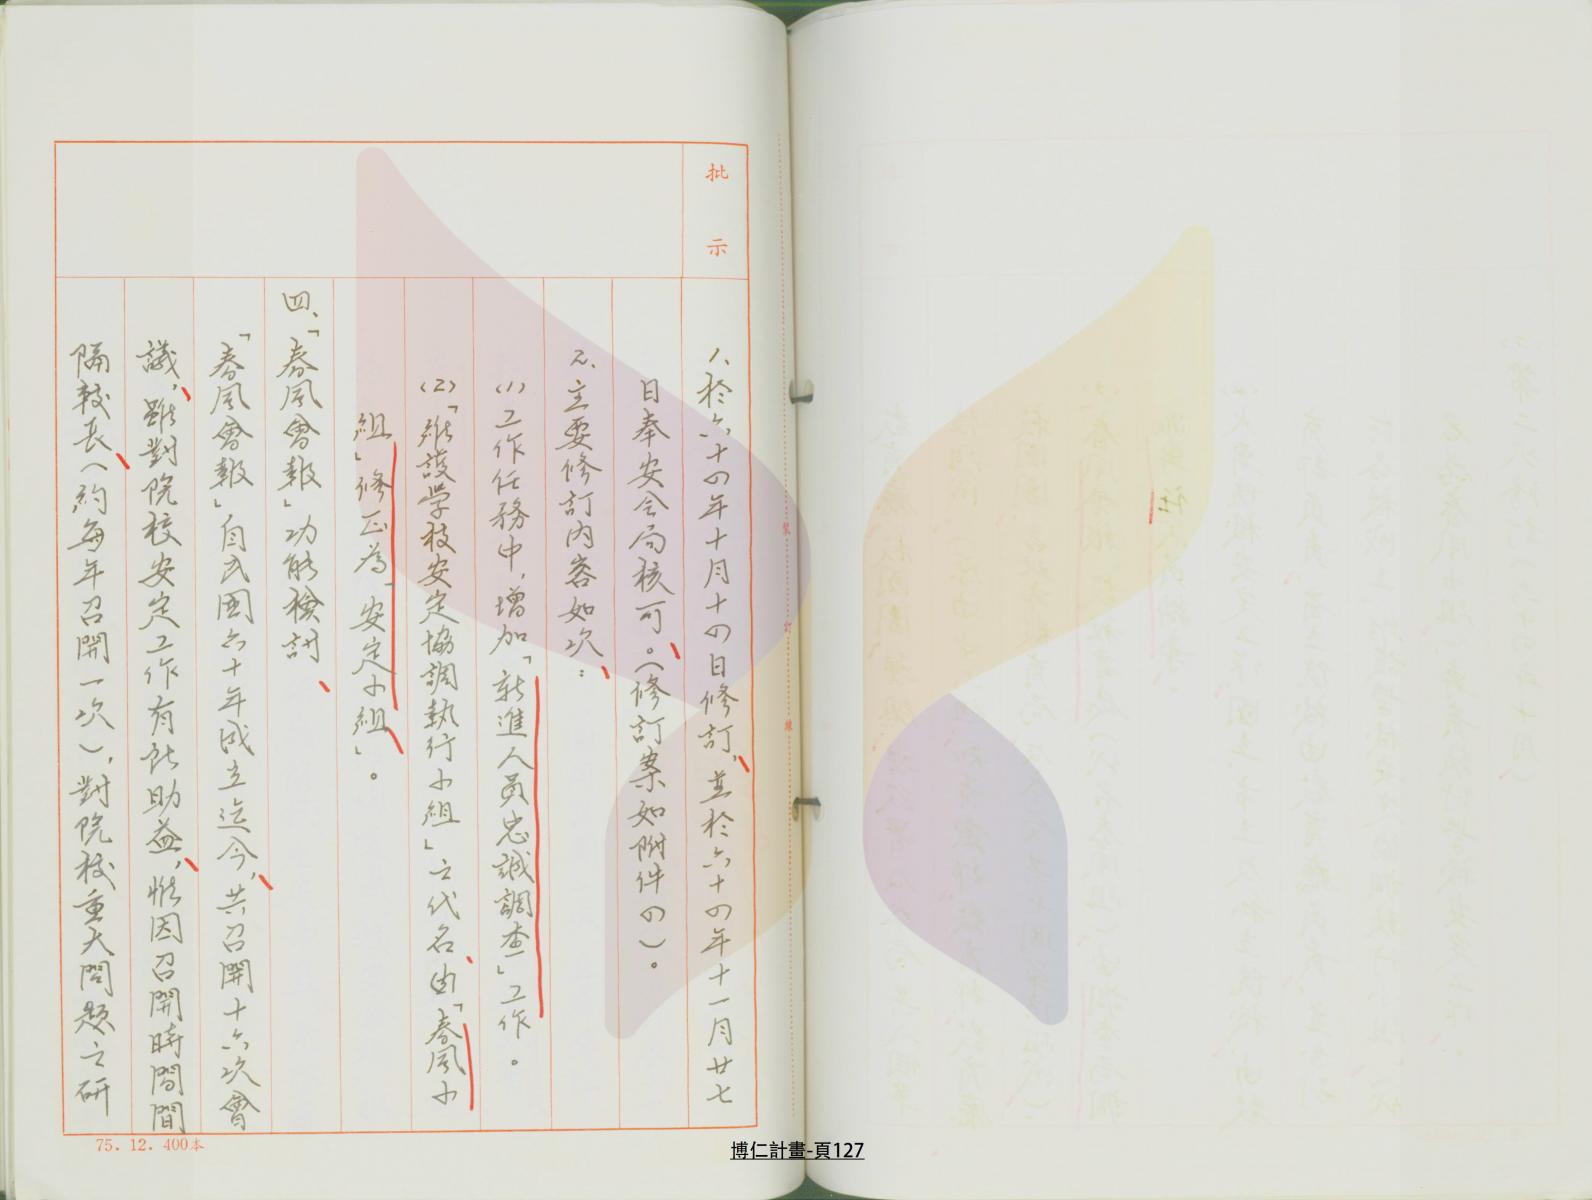 批示
1、於六十四年十月十四日修訂，並於六十四年十一月廿七
日奉安全局核可。（修訂案如附件四）。
2、主要修訂內容如次：
(1)工作任務中，增加「新進人員忠誠調查」工作。
(2)「維護学校安定協調執行小組」之代名，由「春風小
組」修正為「安定小組」。
四、「春風會報」功能檢討
「春風會報」自民國六十年成立迄今，共召開十六次會
議，雖對院校安定工作有所助益，惟因召開時間間
隔較長（約每年召開一次），對院校重大問題之研
75.12.400本
裝
訂
線
博仁計畫-頁127